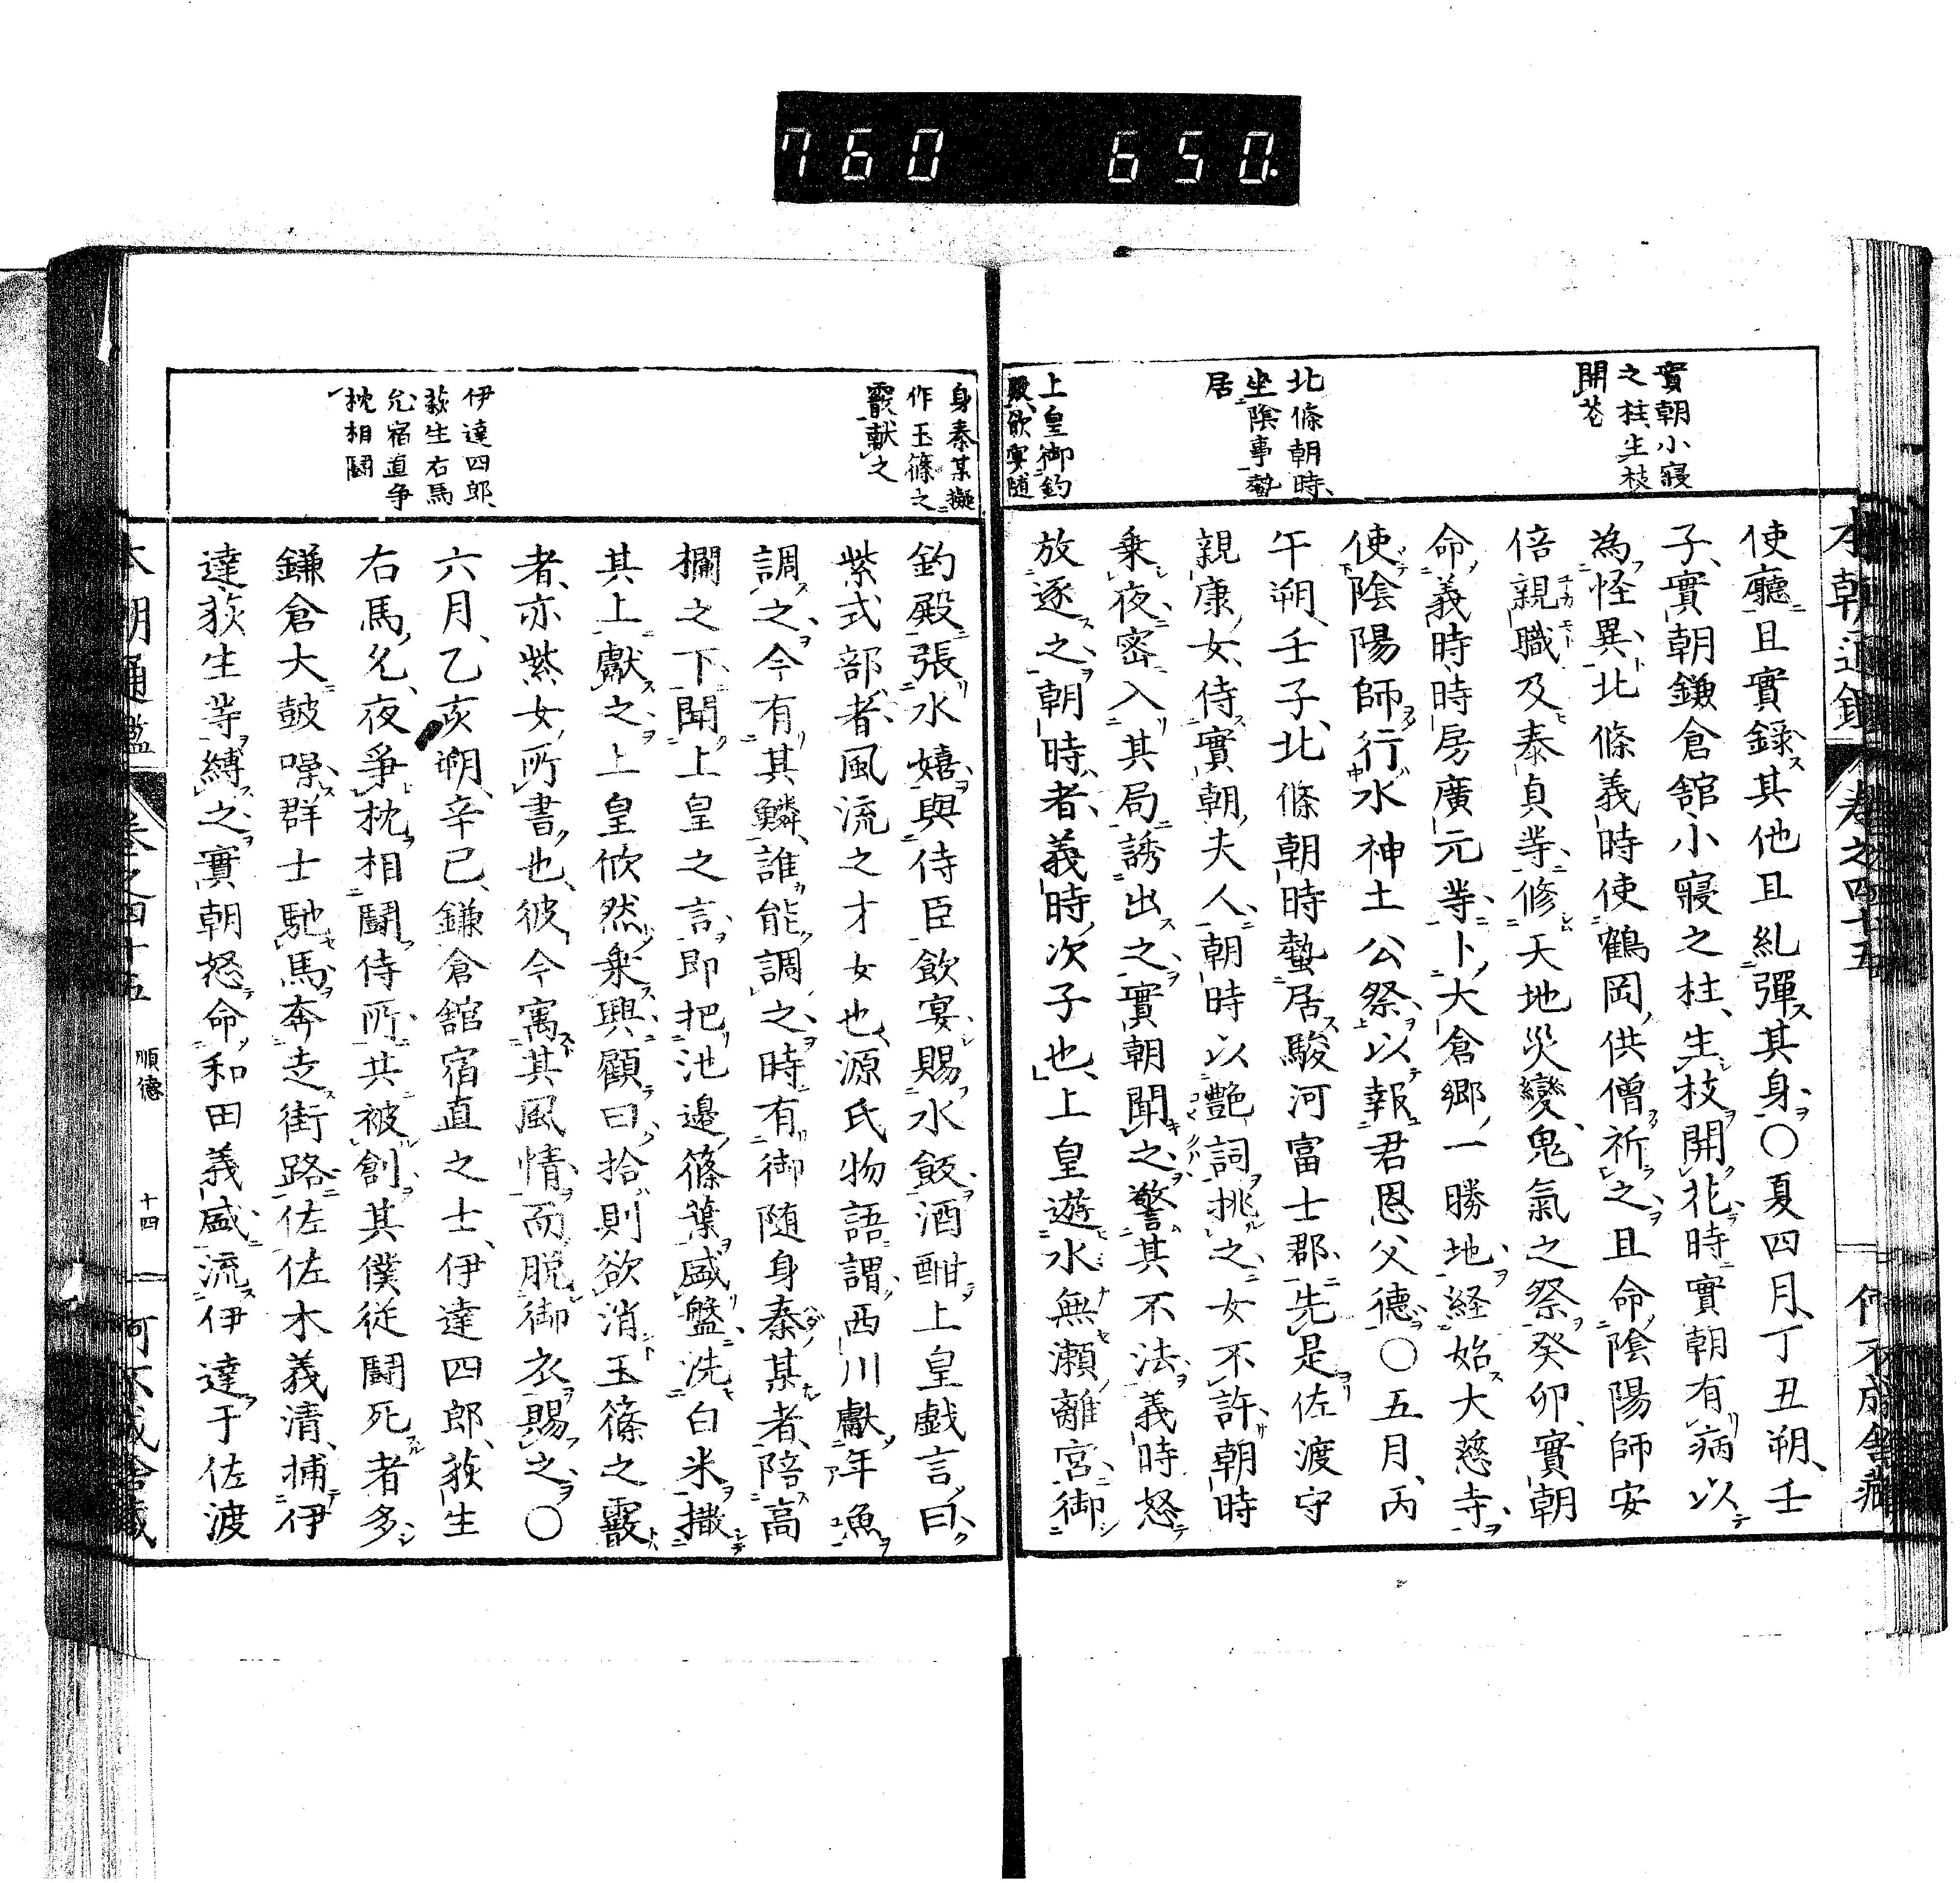 760 650.
本朝通鑑 卷之四十五 何不成舎藏
實朝小寢
之柱、生枝
開花
北條朝時、
坐陰事蟄
居
上皇御釣
殿、欲宴随
使廳且實録其他且糺彈其身〇夏四月、丁丑朔、壬
子、實朝鎌倉舘小寢之柱、生枝開花時實朝有病以
為怪異北條義時使鶴岡供僧祈之且命陰陽師安
倍親職及泰貞等修天地災變鬼氣之祭癸卯、實朝
命義時、時房廣元等卜大倉郷一勝地経始大慈寺
使陰陽師行水神土公祭以報君恩父德〇五月、丙
午朔、壬子、北條朝時蟄居駿河富士郡先是佐渡守
親康女、侍實朝夫人朝時以艶詞挑之女不許朝時
乗夜密入其局誘出之實朝聞之警其不法義時怒
放逐之朝時者、義時次子也、上皇遊水無瀬離宮御
身秦某擬
作玉篠之
霰獻之
伊達四郎、
荻生右馬
允宿直争
枕相鬪
釣殿張水嬉與侍臣飲宴賜水飯酒酣上皇戯言曰
紫式部者風流之才女也源氏物語謂西川獻年魚
調之今有其鱗、誰能調之時有御随身秦某者陪高
欄之下聞上皇之言即把池邊篠葉盛盤洗白米撒
其上獻之上皇欣然乗興顧曰拾則欲消玉篠之霰
者、亦紫女所書也、彼今寓其風情而脱御衣賜之〇
六月、乙亥朔、辛已、鎌倉舘宿直之士、伊達四郎、荻生
右馬允夜爭枕相鬪侍所共被創其僕従鬪死者多
鎌倉大皷噪群士馳馬奔走街路佐佐木義清捕伊
達荻生等縛之實朝怒命和田義盛流伊達于佐渡
本朝通鑑 卷之四十五 順德 十四 何不成舎藏